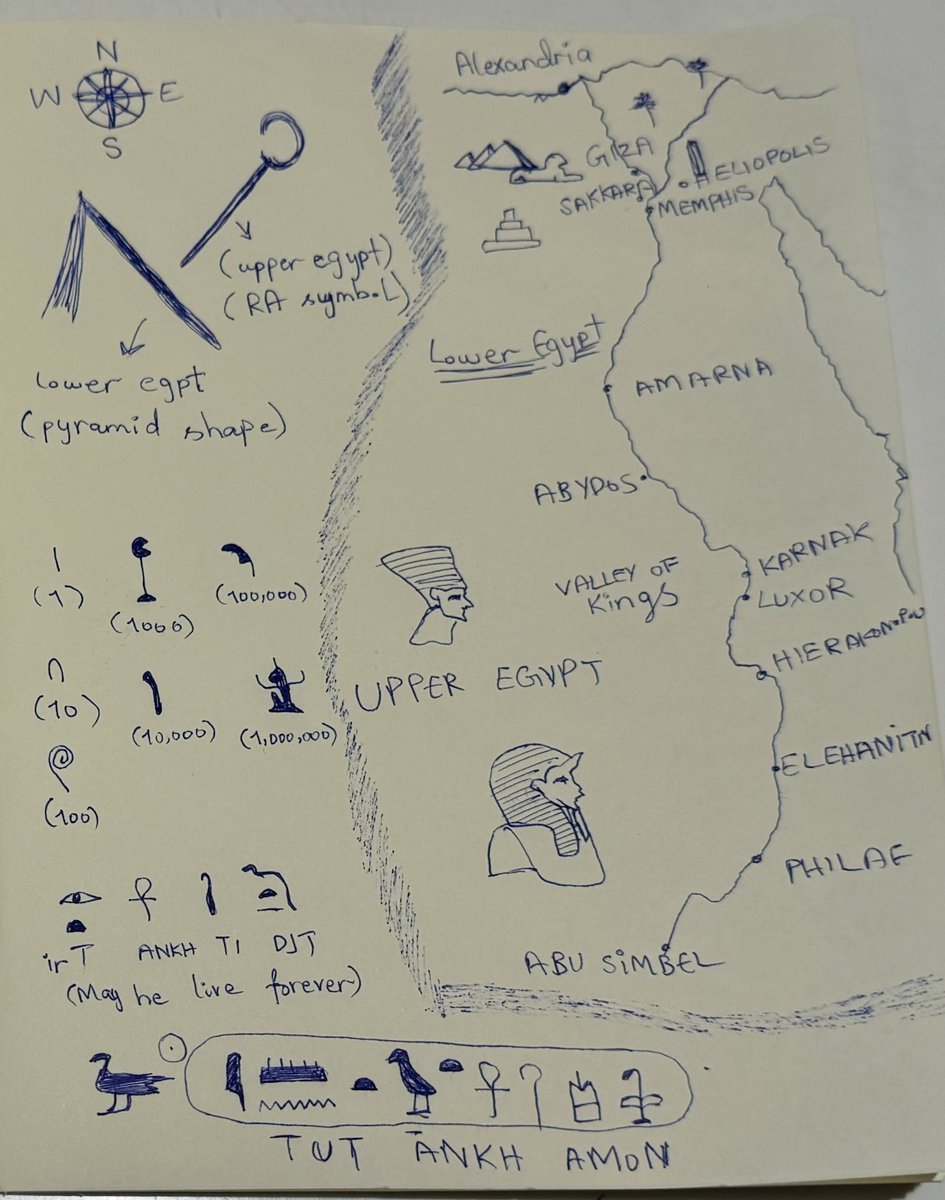 N
W E
S
(upper egypt)
(RA symbol)
lower egpt
(pyramid shape)
(1)
(1000)
(100,000)
(10)
(10,000)
(1,000,000)
(100)
irT ANKH TI DJT
(May he live forever)
TUT ĀNKH AMON
Alexandria
GIZA
HELIOPOLIS
SAKKARA
MEMPHIS
Lower Egypt
AMARNA
ABYDOS
KARNAK
VALLEY OF
Kings
LUXOR
HIERAKONPOU
UPPER EGYPT
ELEHANITN
PHILAE
ABU SIMBEL